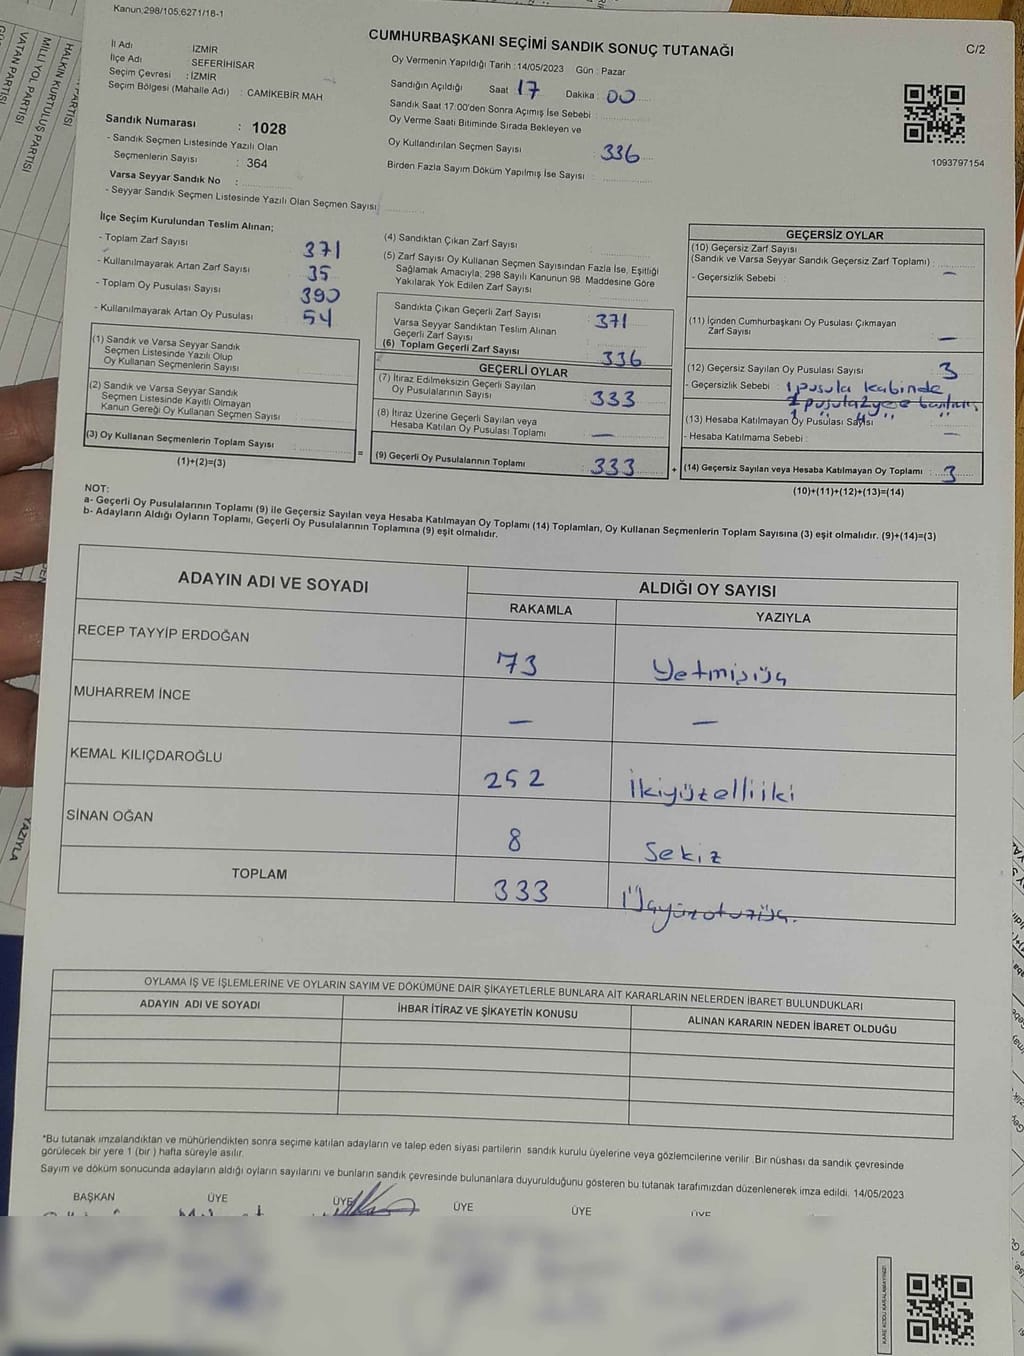 Kanun;298/105;6271/18-1
CUMHURBAŞKANI SEÇİMİ SANDIK SONUÇ TUTANAĞI
C/2
İl Adı : İZMİR
İlçe Adı : SEFERİHİSAR
Seçim Çevresi : İZMİR
Seçim Bölgesi (Mahalle Adı) : CAMİKEBİR MAH
Sandık Numarası : 1028
- Sandık Seçmen Listesinde Yazılı Olan
Seçmenlerin Sayısı : 364
Varsa Seyyar Sandık No :
- Seyyar Sandık Seçmen Listesinde Yazılı Olan Seçmen Sayısı
Oy Vermenin Yapıldığı Tarih : 14/05/2023 Gün : Pazar
Sandığın Açıldığı Saat : 17 Dakika : 00
Sandık Saat 17:00'den Sonra Açımış İse Sebebi :
Oy Verme Saati Bitiminde Sırada Bekleyen ve
Oy Kullandırılan Seçmen Sayısı : 336
Birden Fazla Sayım Döküm Yapılmış İse Sayısı :
1093797154
İlçe Seçim Kurulundan Teslim Alınan;
- Toplam Zarf Sayısı 371
- Kullanılmayarak Artan Zarf Sayısı 35
- Toplam Oy Pusulası Sayısı 390
- Kullanılmayarak Artan Oy Pusulası 54
(1) Sandık ve Varsa Seyyar Sandık
Seçmen Listesinde Yazılı Olup
Oy Kullanan Seçmenlerin Sayısı :
(2) Sandık ve Varsa Seyyar Sandık
Seçmen Listesinde Kayıtlı Olmayan
Kanun Gereği Oy Kullanan Seçmen Sayısı :
(3) Oy Kullanan Seçmenlerin Toplam Sayısı :
(1)+(2)=(3)
=
(4) Sandıktan Çıkan Zarf Sayısı :
(5) Zarf Sayısı Oy Kullanan Seçmen Sayısından Fazla İse, Eşitliği
Sağlamak Amacıyla, 298 Sayılı Kanunun 98. Maddesine Göre
Yakılarak Yok Edilen Zarf Sayısı :
Sandıkta Çıkan Geçerli Zarf Sayısı : 371
Varsa Seyyar Sandıktan Teslim Alınan
Geçerli Zarf Sayısı :
(6) Toplam Geçerli Zarf Sayısı : 336
GEÇERLİ OYLAR
(7) İtiraz Edilmeksizin Geçerli Sayılan
Oy Pusulalarının Sayısı : 333
(8) İtiraz Üzerine Geçerli Sayılan veya
Hesaba Katılan Oy Pusulası Toplamı : —
(9) Geçerli Oy Pusulalarının Toplamı : 333
+
GEÇERSİZ OYLAR
(10) Geçersiz Zarf Sayısı
(Sandık ve Varsa Seyyar Sandık Geçersiz Zarf Toplamı) : —
- Geçersizlik Sebebi :
(11) İçinden Cumhurbaşkanı Oy Pusulası Çıkmayan
Zarf Sayısı : —
(12) Geçersiz Sayılan Oy Pusulası Sayısı : 3
- Geçersizlik Sebebi : 1 pusula kabinde
(13) Hesaba Katılmayan Oy Pusulası Sayısı : —
- Hesaba Katılmama Sebebi :
(14) Geçersiz Sayılan veya Hesaba Katılmayan Oy Toplamı : 3
(10)+(11)+(12)+(13)=(14)
NOT:
a- Geçerli Oy Pusulalarının Toplamı (9) ile Geçersiz Sayılan veya Hesaba Katılmayan Oy Toplamı (14) Toplamları, Oy Kullanan Seçmenlerin Toplam Sayısına (3) eşit olmalıdır. (9)+(14)=(3)
b- Adayların Aldığı Oyların Toplamı, Geçerli Oy Pusulalarının Toplamına (9) eşit olmalıdır.
ADAYIN ADI VE SOYADI
ALDIĞI OY SAYISI
RAKAMLA YAZIYLA
RECEP TAYYİP ERDOĞAN 73 Yetmişüç
MUHARREM İNCE — —
KEMAL KILIÇDAROĞLU 252 İkiyüzelliiki
SİNAN OĞAN 8 Sekiz
TOPLAM 333 Üçyüzotuzüç.
OYLAMA İŞ VE İŞLEMLERİNE VE OYLARIN SAYIM VE DÖKÜMÜNE DAİR ŞİKAYETLERLE BUNLARA AİT KARARLARIN NELERDEN İBARET BULUNDUKLARI
ADAYIN ADI VE SOYADI İHBAR İTİRAZ VE ŞİKAYETİN KONUSU ALINAN KARARIN NEDEN İBARET OLDUĞU
*Bu tutanak imzalandıktan ve mühürlendikten sonra seçime katılan adayların ve talep eden siyasi partilerin sandık kurulu üyelerine veya gözlemcilerine verilir. Bir nüshası da sandık çevresinde
görülecek bir yere 1 (bir ) hafta süreyle asılır.
Sayım ve döküm sonucunda adayların aldığı oyların sayılarını ve bunların sandık çevresinde bulunanlara duyurulduğunu gösteren bu tutanak tarafımızdan düzenlenerek imza edildi. 14/05/2023
BAŞKAN ÜYE ÜYE ÜYE ÜYE ÜYE
KARE KODU KARALAMAYINIZ!
HALKIN KURTULUŞ PARTİSİ
MİLLİ YOL PARTİSİ
VATAN PARTİSİ
YAZIYLA